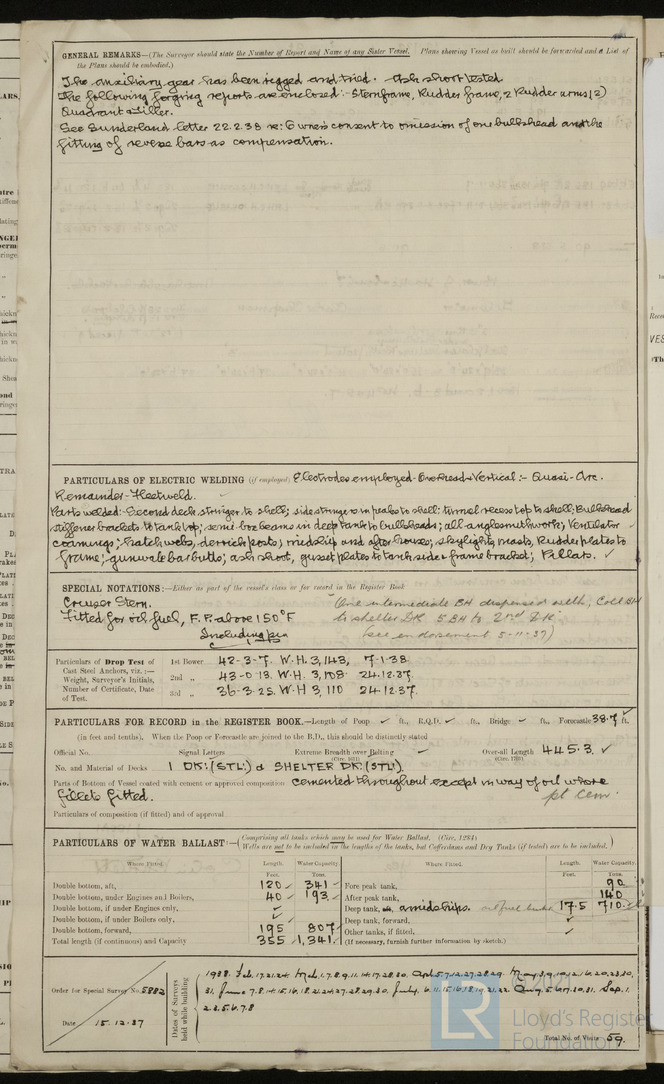 GENERAL REMARKS—(The Surveyor should state the Number of Report and Name of any Sister Vessel. Plans showing Vessel as built should be forwarded and a List of
the Plans should be embodied.)
The auxiliary gear has been rigged and tried. Ash shoot tested
The following forging reports are enclosed:- Sternframe, Rudder frame, 2 Rudder arms (2)
Quadrant & Tiller.
See Sunderland letter 22.2.38 re: Owners consent to omission of one bulkhead and the
fitting of reverse bars as compensation.
PARTICULARS OF ELECTRIC WELDING (if employed) Electrodes employed - Overhead & Vertical:- Quasi-Arc.
Remainder - Fleetweld.
Parts welded: Second deck stringer to shell; side stringers in peaks to shell; tunnel recess top to shell; Bulkhead
stiffener brackets to tank top; semi-box beams in deep tank to bulkheads; all anglesmithwork; Ventilator
coamings; hatch webs, derrick posts; midship and after houses; skylights, masts, Rudder plates to
frame; gunwale bar butts; ash shoot, gusset plates to tank side & frame bracket; Pillars. ✓
SPECIAL NOTATIONS:—Either as part of the vessel's class or for record in the Register Book
Cruiser Stern.
Fitted for oil fuel, F.P. above 150°F
(One intermediate BH dispensed with; Coll BH
to shelter DK 5 BH to 2nd DK
(see endorsement 5-11-37)
Particulars of Drop Test of
Cast Steel Anchors, viz.:—
Weight, Surveyor's Initials,
Number of Certificate, Date
of Test.
1st Bower 42-3-7. W.H. 3,143, 7-1-38
2nd „ 43-0-13. W.H. 3,108 24.12.37.
3rd „ 36-3-25. W.H 3,110 24.12.37.
PARTICULARS FOR RECORD in the REGISTER BOOK.—Length of Poop ✓ ft., R.Q.D. ✓ ft., Bridge ✓ ft., Forecastle 38.7 ft.
(in feet and tenths). When the Poop or Forecastle are joined to the B.D., this should be distinctly stated
Official No. Signal Letters Extreme Breadth over Belting ✓ Over-all Length 445.3 ✓
(Circ. 1611) (Circ. 1703)
No. and Material of Decks 1 DK: (STL:) & SHELTER DK: (STL).
Parts of Bottom of Vessel coated with cement or approved composition cemented throughout except in way of oil where
fillets fitted. pt cem.
Particulars of composition (if fitted) and of approval
PARTICULARS OF WATER BALLAST:—(Comprising all tanks which may be used for Water Ballast. (Circ. 1284)
Wells are not to be included in the lengths of the tanks, but Cofferdams and Dry Tanks (if tested) are to be included.)
Where Fitted. Length. Water Capacity. Where Fitted. Length. Water Capacity.
Feet. Tons. Feet. Tons.
Double bottom, aft, 120 ✓ 341 Fore peak tank, 90
Double bottom, under Engines and Boilers, 40 ✓ 193 After peak tank, 140
Double bottom, if under Engines only, ✓ Deep tank, amidships. oil fuel bunker 17.5 710
Double bottom, if under Boilers only, ✓ Deep tank, forward, ✓
Double bottom, forward, 195 807 Other tanks, if fitted, ✓
Total length (if continuous) and Capacity 355 1,341 (If necessary, furnish further information by sketch.)
Order for Special Survey No. 5882
Date 15.12.37
Dates of Surveys
held while building
Total No. of Visits 59.
LR
© 2021
Lloyd's Register
Foundation